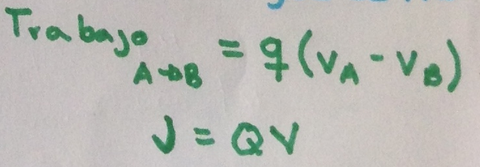 Trabajo A→B = q(VA - VB)
J = QV